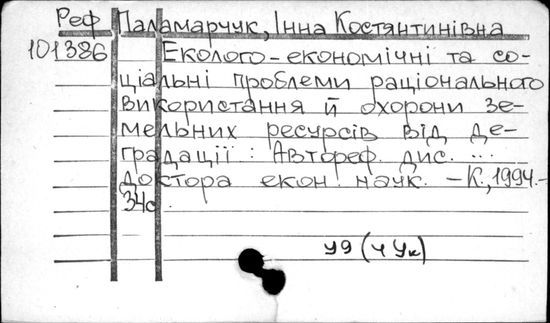 Реф Паламарчук, Інна Костянтинівна
101386 Еколого-економічні та со-
ціальні проблеми раціонального
використання й охорони зе-
мельних ресурсів від де-
градації : Автореф. дис. ...
доктора екон. наук. - К., 1994.-
34с.
У9 (4 Ук)